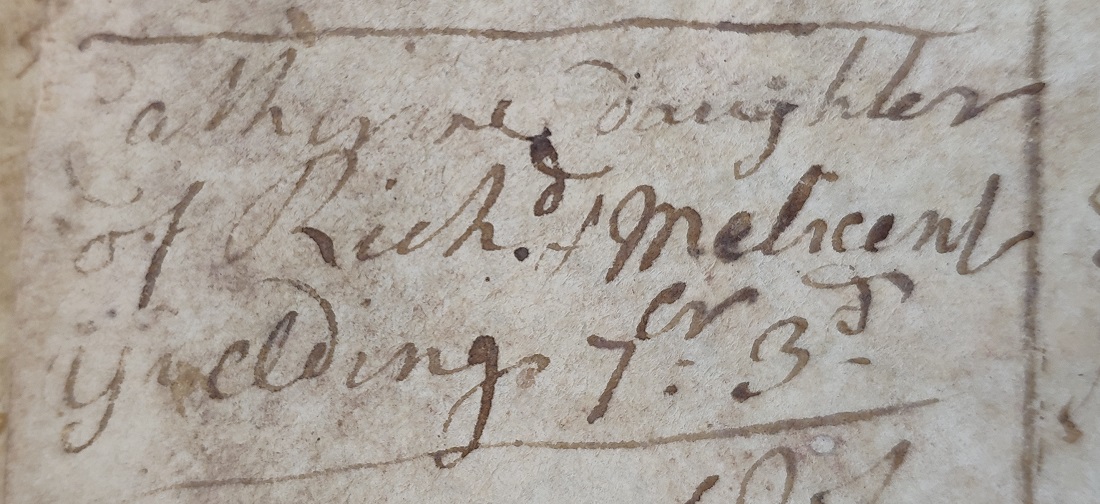 Catherine daughter
of Rich.d & Melicent
Yieldings 7er: 3d